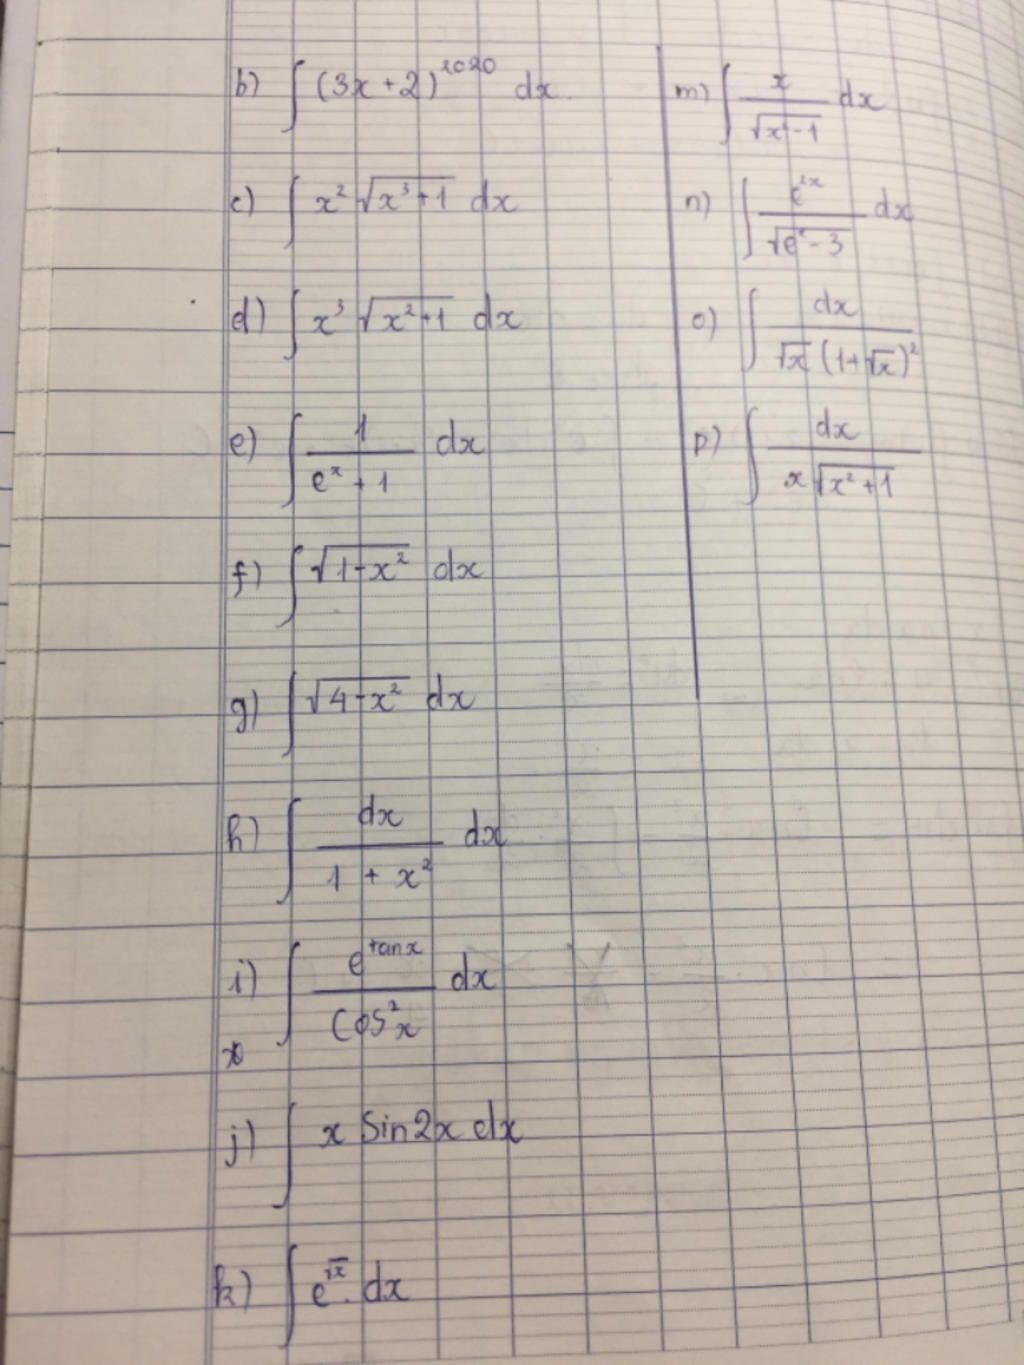 b) ∫ (3x + 2)²⁰²⁰ dx
c) ∫ x² √(x³ + 1) dx
d) ∫ x³ √(x² + 1) dx
e) ∫ 1/(eˣ + 1) dx
f) ∫ √(1 - x²) dx
g) ∫ √(4 - x²) dx
h) ∫ dx/(1 + x²) dx
i) ∫ e^(tan x)/(cos² x) dx
j) ∫ x sin 2x dx
k) ∫ e^(√x) . dx
m) ∫ x/√(x² - 1) dx
n) ∫ e²ˣ/√(eˣ - 3) dx
o) ∫ dx/(√x (1 + √x)²)
p) ∫ dx/(x √(x² + 1))